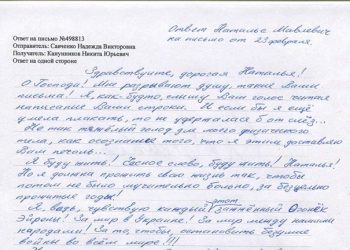 Ответ Наталье Мавлевич
на письмо от 23 февраля.
Ответ на письмо №498813
Отправитель: Савченко Надежда Викторовна
Получатель: Канунников Никита Юрьевич
Ответ на одной стороне
Здравствуйте, дорогая Наталья!
О Господи! Мне разрывают душу такие Ваши
письма! Я, как будто, слышу Ваш голос читая
написанные Вами строки. И если бы я ещё
умела плакать, то не удержалась б от слёз...
Не так тяжёлый голод для моего физического
тела, как осознание того, что я этим доставляю
Вам печаль...
Я буду жить! Честное слово, буду жить! Наталья!
Но я должна прожить свою жизнь так, чтобы
потом не было мучительно больно, за бесцельно
прожитые годы!
Я, ведь, чувствую каждый этот зажжённый Огонёк
За мир в Украине! За мир между нашими
народами! За то, чтобы, остановить безумие
войны во всём мире!!!